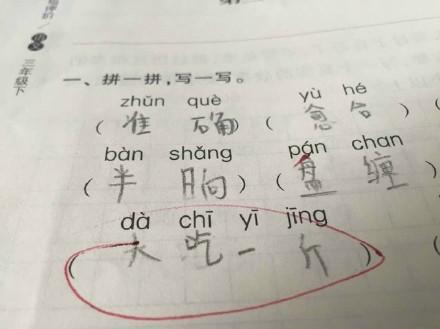 三年级下
一、拼一拼,写一写。
zhǔn què yù hé
( 准 确 ) ( 愈 合 ) (
bàn shǎng pán chan
( 半 晌 ) ( 盘 缠 )
dà chī yī jīng
( 大 吃 一 斤 ) (